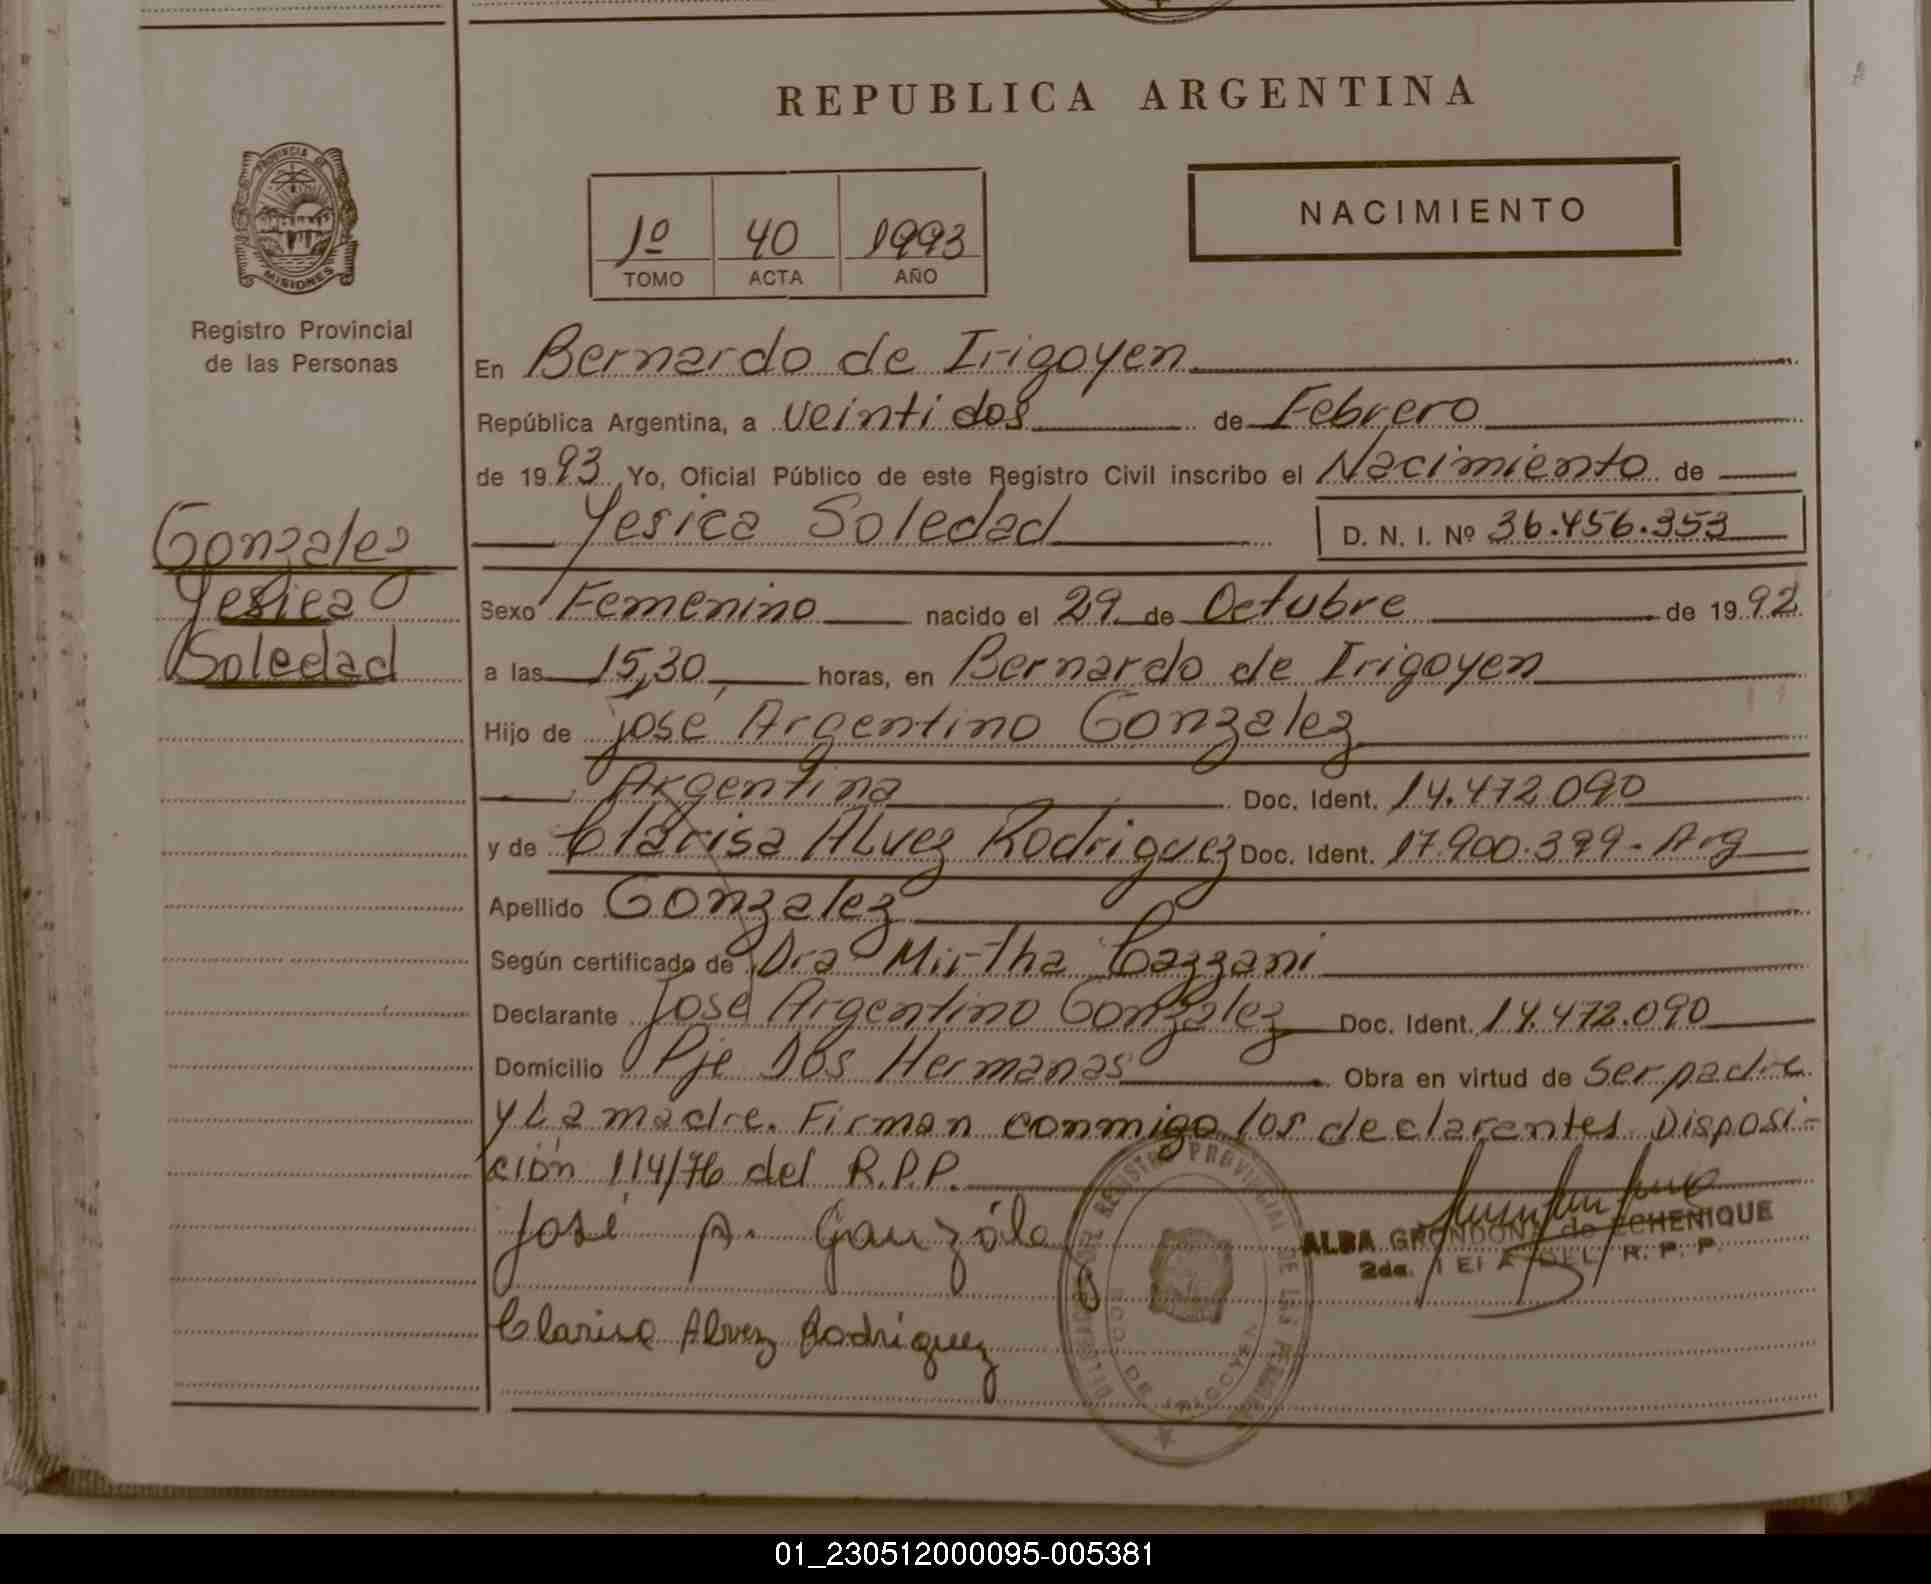 REPUBLICA ARGENTINA
PROVINCIA DE
MISIONES
Registro Provincial
de las Personas
1º 40 1993
TOMO ACTA AÑO
NACIMIENTO
En Bernardo de Irigoyen
República Argentina, a veinti dos de Febrero
de 1993 Yo, Oficial Público de este Registro Civil inscribo el Nacimiento de
Yesica Soledad D. N. I. Nº 36.456.353
Gonzalez
Yesica
Soledad
Sexo Femenino nacido el 29 de Octubre de 1992
a las 15,30 horas, en Bernardo de Irigoyen
Hijo de José Argentino Gonzalez
Argentina Doc. Ident. 14.472.090
y de Clarisa Alvez Rodriguez Doc. Ident. 17.900.399 - Arg
Apellido Gonzalez
Según certificado de Dra Mirtha Cazzani
Declarante José Argentino Gonzalez Doc. Ident. 14.472.090
Domicilio Pje Dos Hermanas Obra en virtud de ser padre
y La madre. Firman conmigo los declarantes Disposi-
ción 114/76 del R.P.P.
José A. Gonzále
ALBA GRONDONA de ECHENIQUE
2da. DEL R. P. P.
Clarisa Alvez Rodriguez
REGISTRO PROVINCIAL DE LAS
DE IRIGOYEN
01_230512000095-005381